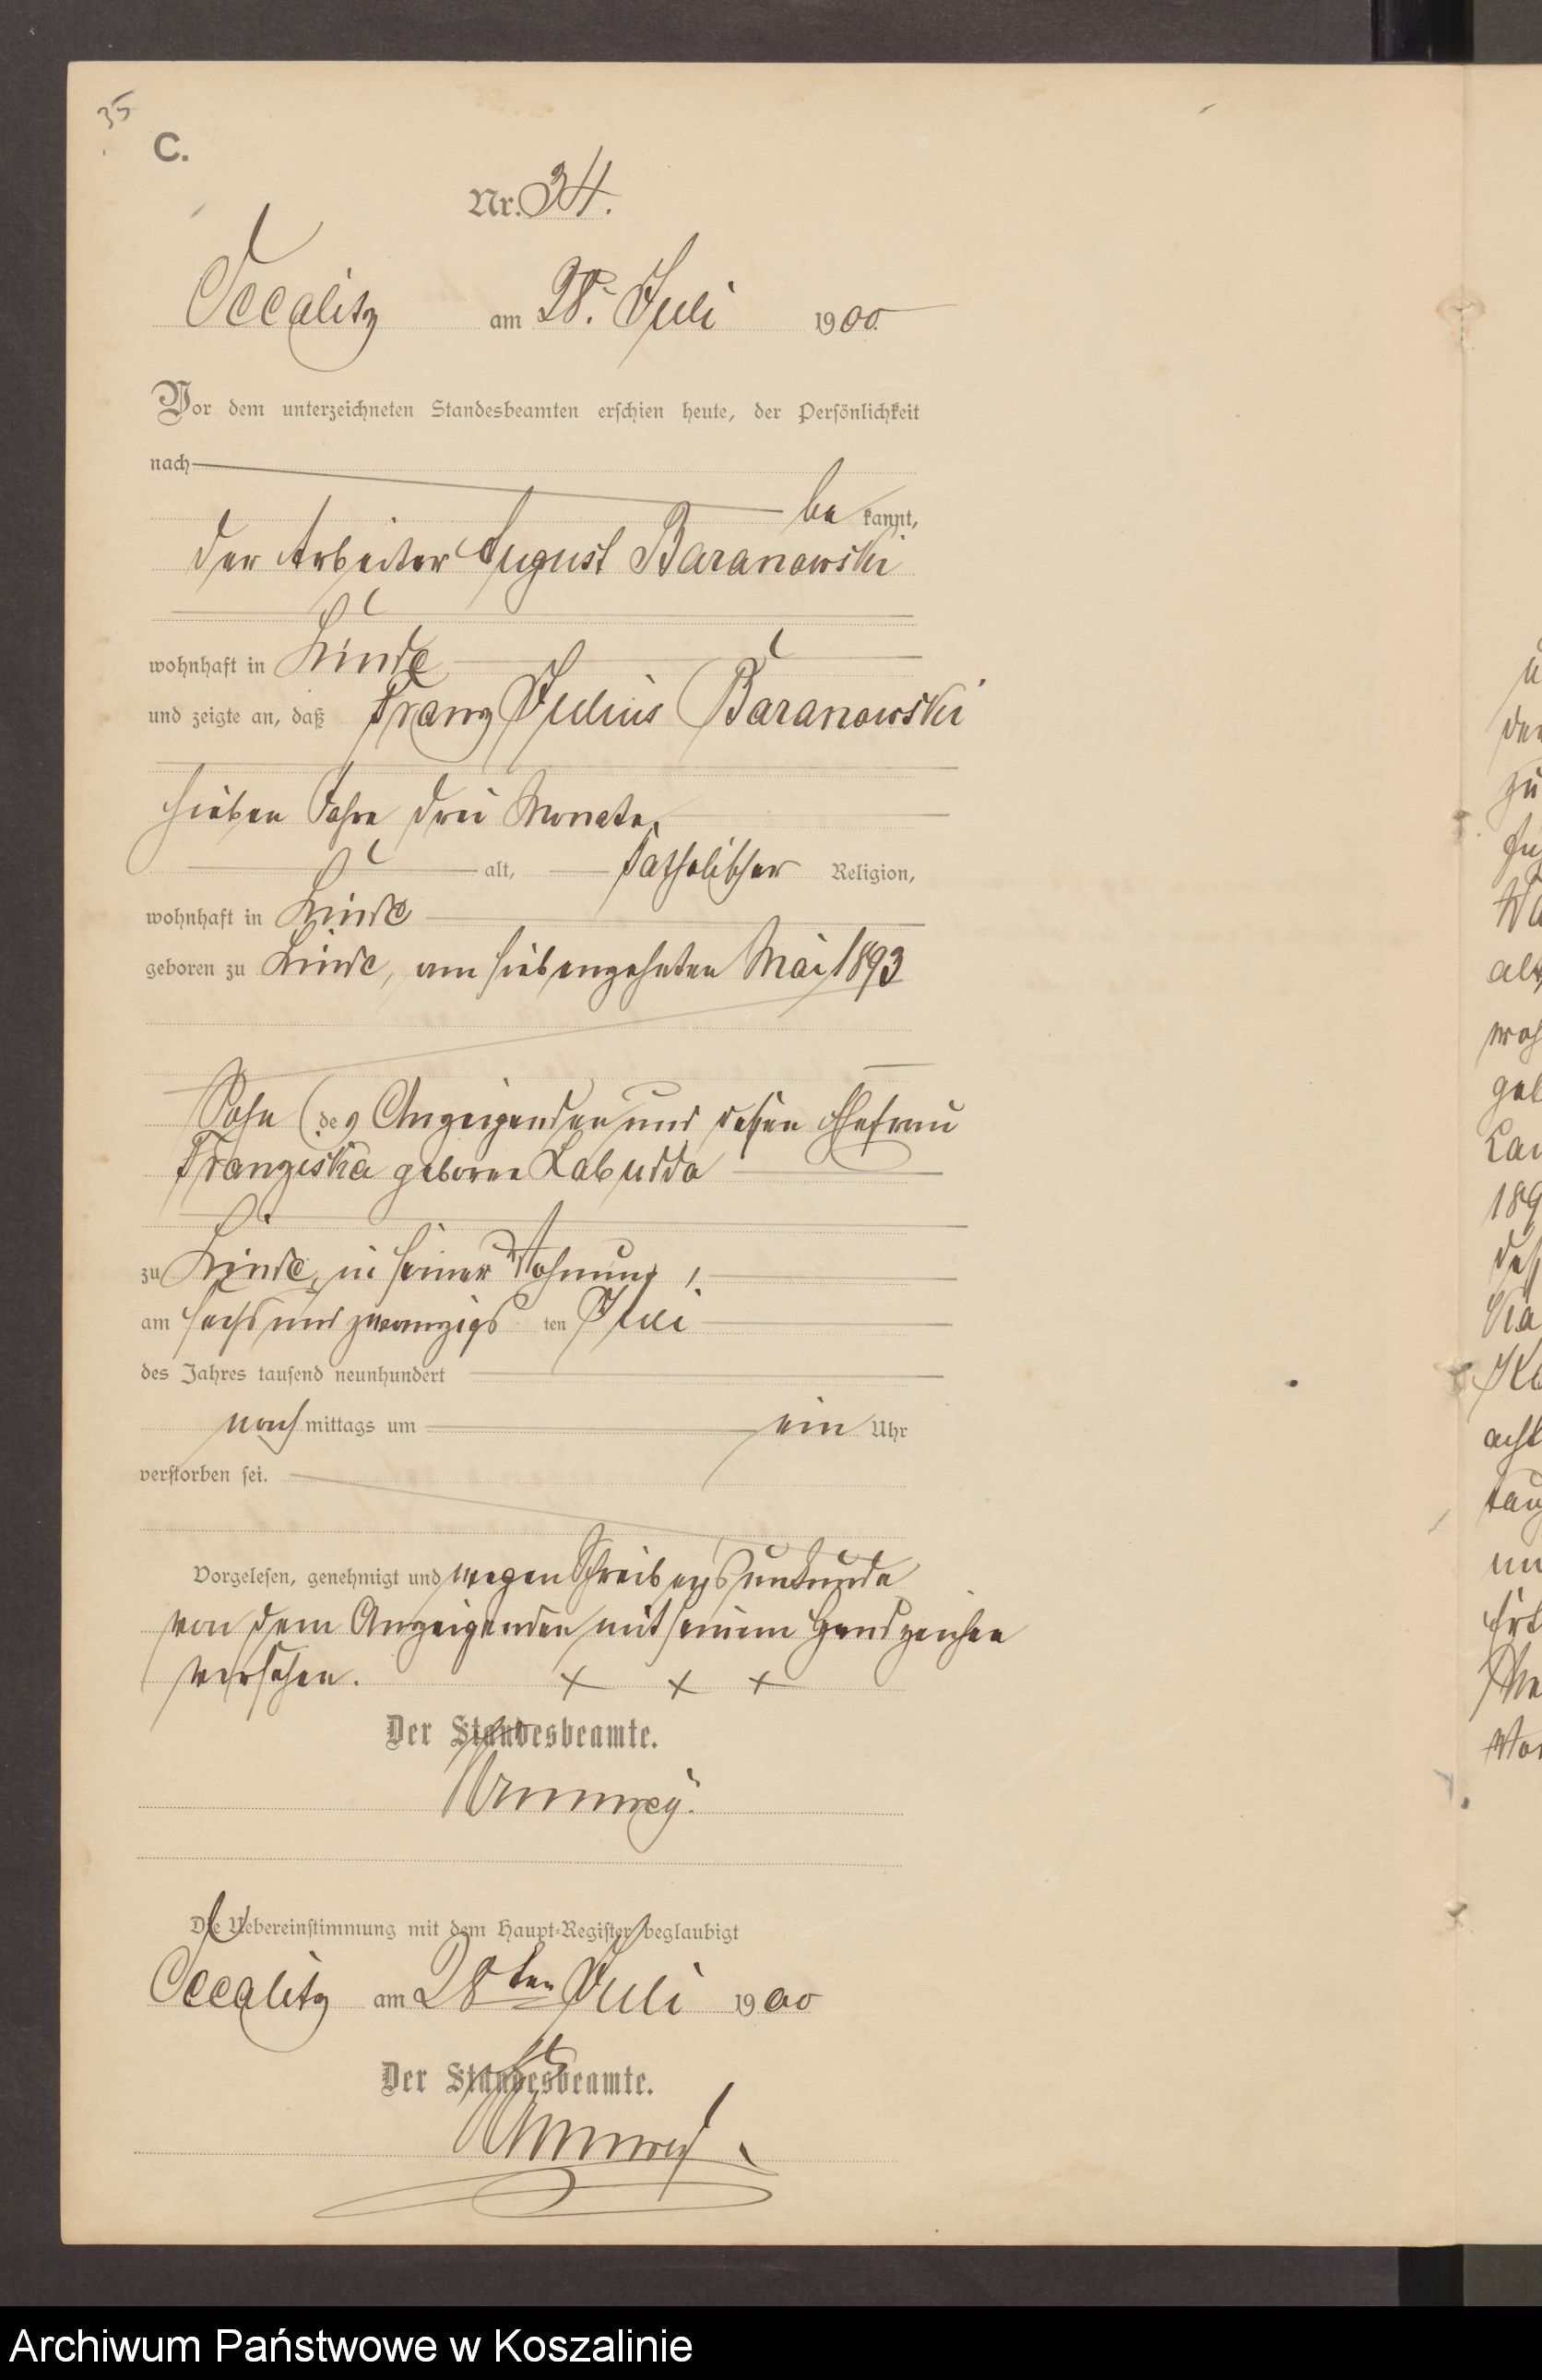 35
C.
Nr. 34.
Occalitz am 28. Juli 1900.
Vor dem unterzeichneten Standesbeamten erschien heute, der Persönlichkeit
nach
be kannt,
der Arbeiter August Baranowski
wohnhaft in Linde
und zeigte an, daß Franz Julius Baranowski
sieben Jahre drei Monate,
alt, katholischer Religion,
wohnhaft in Linde
geboren zu Linde, am siebenzehnten Mai 1893
Sohn des Anzeigenden und dessen Ehefrau
Franziska geborne Labudda
zu Linde, in seiner Wohnung,
am sechs und zwanzigs ten Juli
des Jahres tausend neunhundert
nach mittags um ein Uhr
verstorben sei.
Vorgelesen, genehmigt und wegen Schreibensunkunde
von dem Anzeigenden mit seinem Handzeichen
versehen. + + +
Der Standesbeamte.
Die Uebereinstimmung mit dem Haupt-Register beglaubigt
Occalitz am 28ten Juli 1900
Der Standesbeamte.
Archiwum Państwowe w Koszalinie